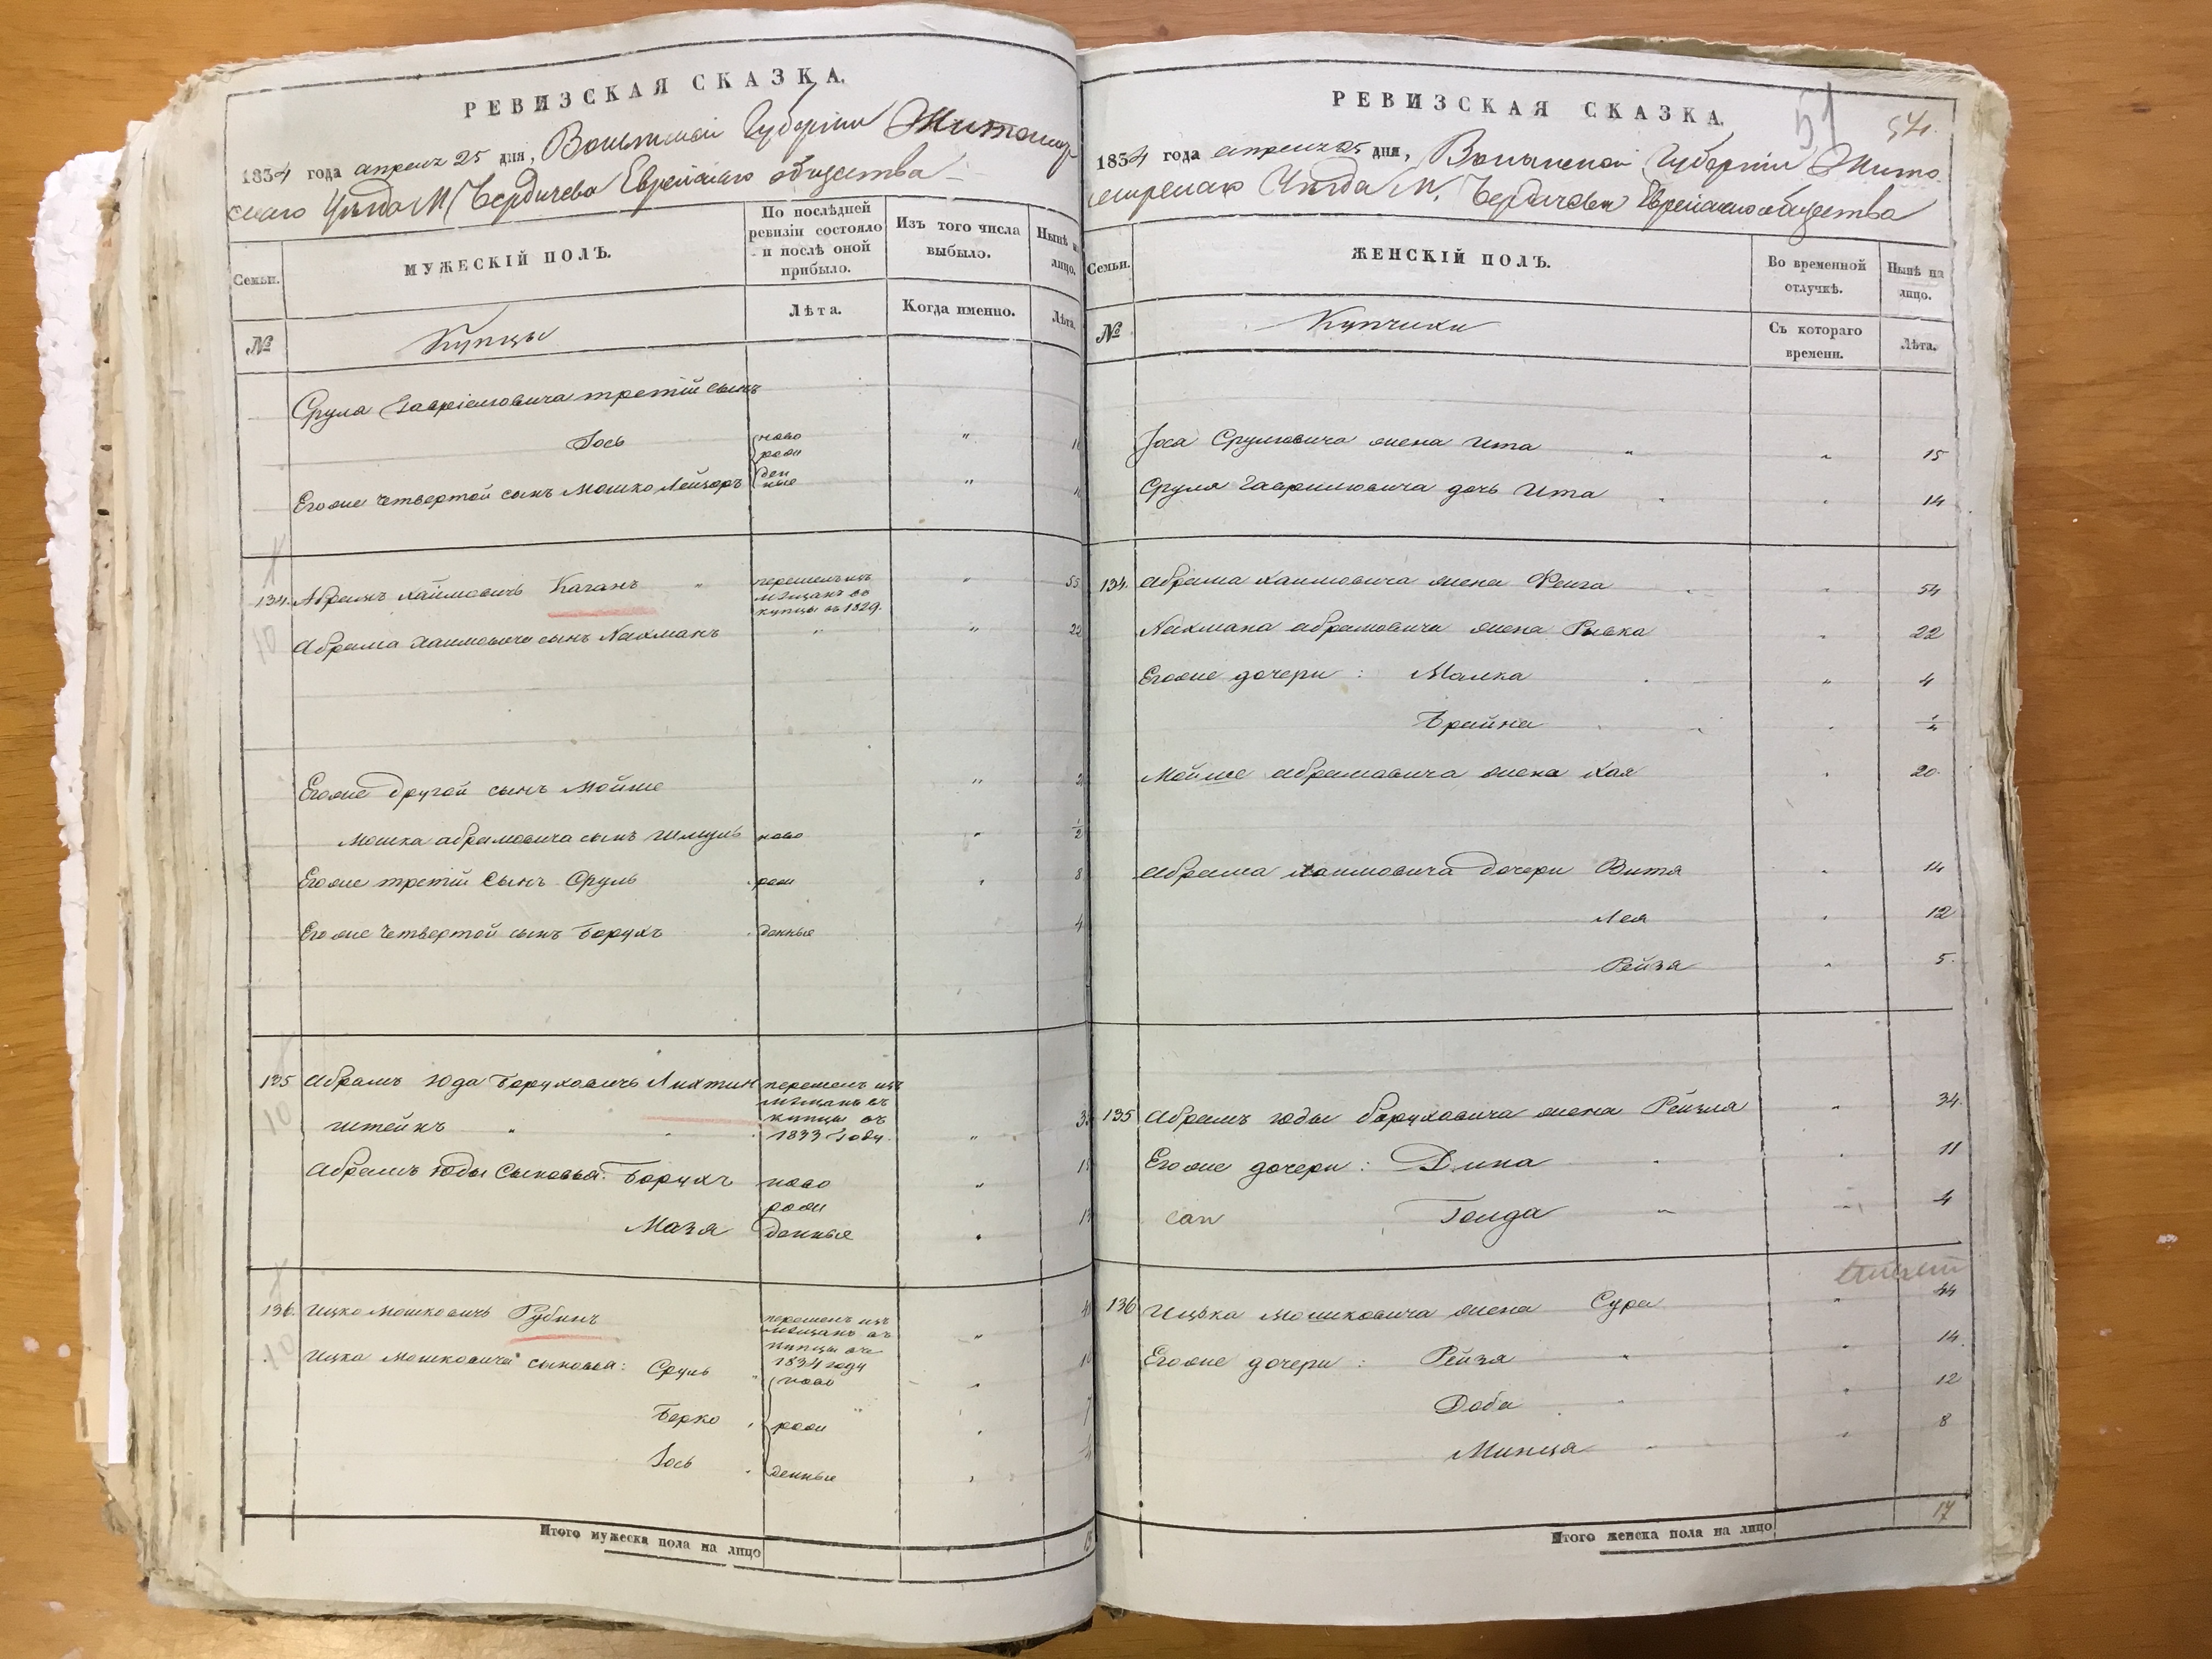 РЕВИЗСКАЯ СКАЗКА.
1834 года апреля 25 дня, Волынской Губернии Житомир
скаго Уѣзда М. Бердичева Еврейскаго общества
Семьи.
МУЖЕСКІЙ ПОЛЪ.
По послѣдней ревизіи состояло и послѣ оной прибыло.
Изъ того числа выбыло.
Нынѣ на лицо.
№
Купцы
Лѣта.
Когда именно.
Лѣта.
Сруля Гавріеловича третій сынъ
Іось ново
рож
Егоже четвертой сынъ Мошко Лейзоръ ден
ные
134. Абрамъ Хаимовичь Каганъ " перешелъ изъ мѣщанъ въ купцы въ 1829. " 55
Абрама Хаимовича сынъ Нахманъ " " 22
Егоже другой сынъ Мойше "
Мошка Абрамовича сынъ Шмуль ново " 1/2
Егоже третій сынъ Сруль рож " 8
Егоже четвертой сынъ Борухъ денные 4
135 Абрамъ Юда Боруховичь Лихтин
штейнъ " перешелъ изъ мѣщанъ въ купцы въ 1833 году. "
Абрамъ Юды сыновья: Борухъ ново "
рож
Мазя денные
136. Ицко Мошковичь Рубинъ перешелъ изъ мѣщанъ въ купцы въ 1834 году "
Ицка Мошковича сыновья: Сруль ново
Берко рож
Іось денные
Итого мужеска пола на лицо
РЕВИЗСКАЯ СКАЗКА.
51
54.
1834 года апреля 25 дня, Волынской Губерніи Жито
мирскаго Уѣзда М. Бердичева Еврейскаго общества
Семьи.
ЖЕНСКІЙ ПОЛЪ.
Во временной отлучкѣ.
Нынѣ на лицо.
№
Купчихи
Съ котораго времени.
Лѣта.
Іося Срулювича жена Ита " " 15
Сруля Гаврилювича дочь Ита " 14
134. Абрама Хаимовича жена Фейга " 54
Нахмана Абрамовича жена Рывка " 22
Егоже дочери: Малка " 4
Брайна "
Мойше Абрамовича жена Хая " 20.
Абрама Хаимовича дочери Витя " 14
Лея " 12
Рейзя " 5.
135 Абрамъ Юды Боруховича жена Рейзля " 34.
Егоже дочери: Дина " 11
Голда " 4
136 Ицька Мошковича жена Сура " 44
Егоже дочери: Рейзя " 14.
Доба " 12
Минця " 8
Итого женска пола на лицо 17